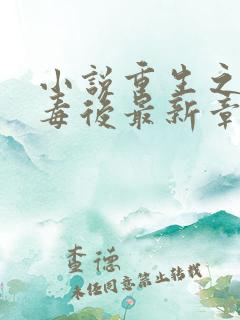 小说重生之
毒後最新章
查德
未经同意禁止转载